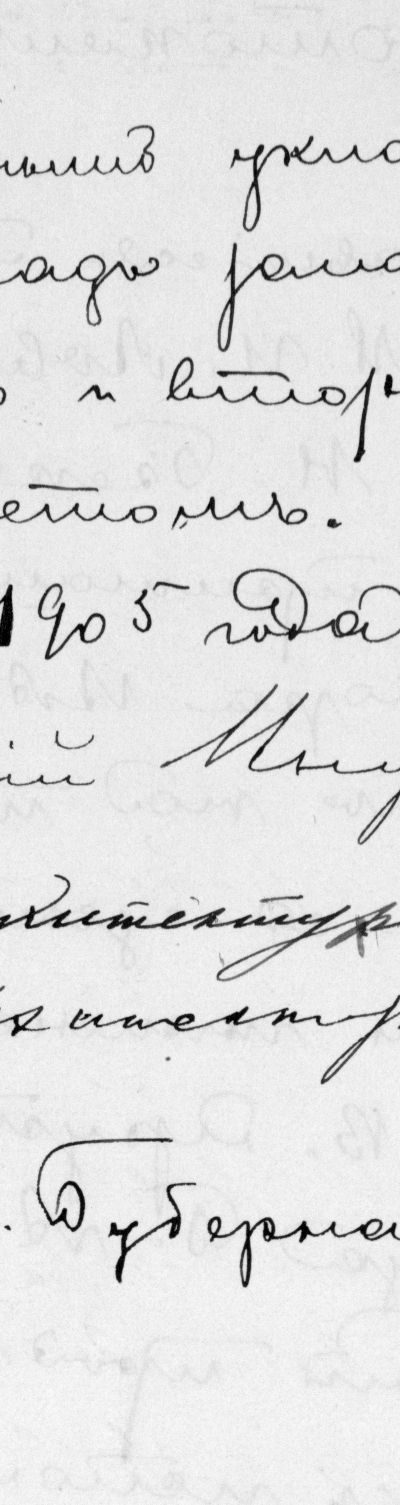 нымъ укла
ладъ зама
ъ и втор
етомъ.
1905 года
ій Ин
хитектур
хитектур
. Губерна